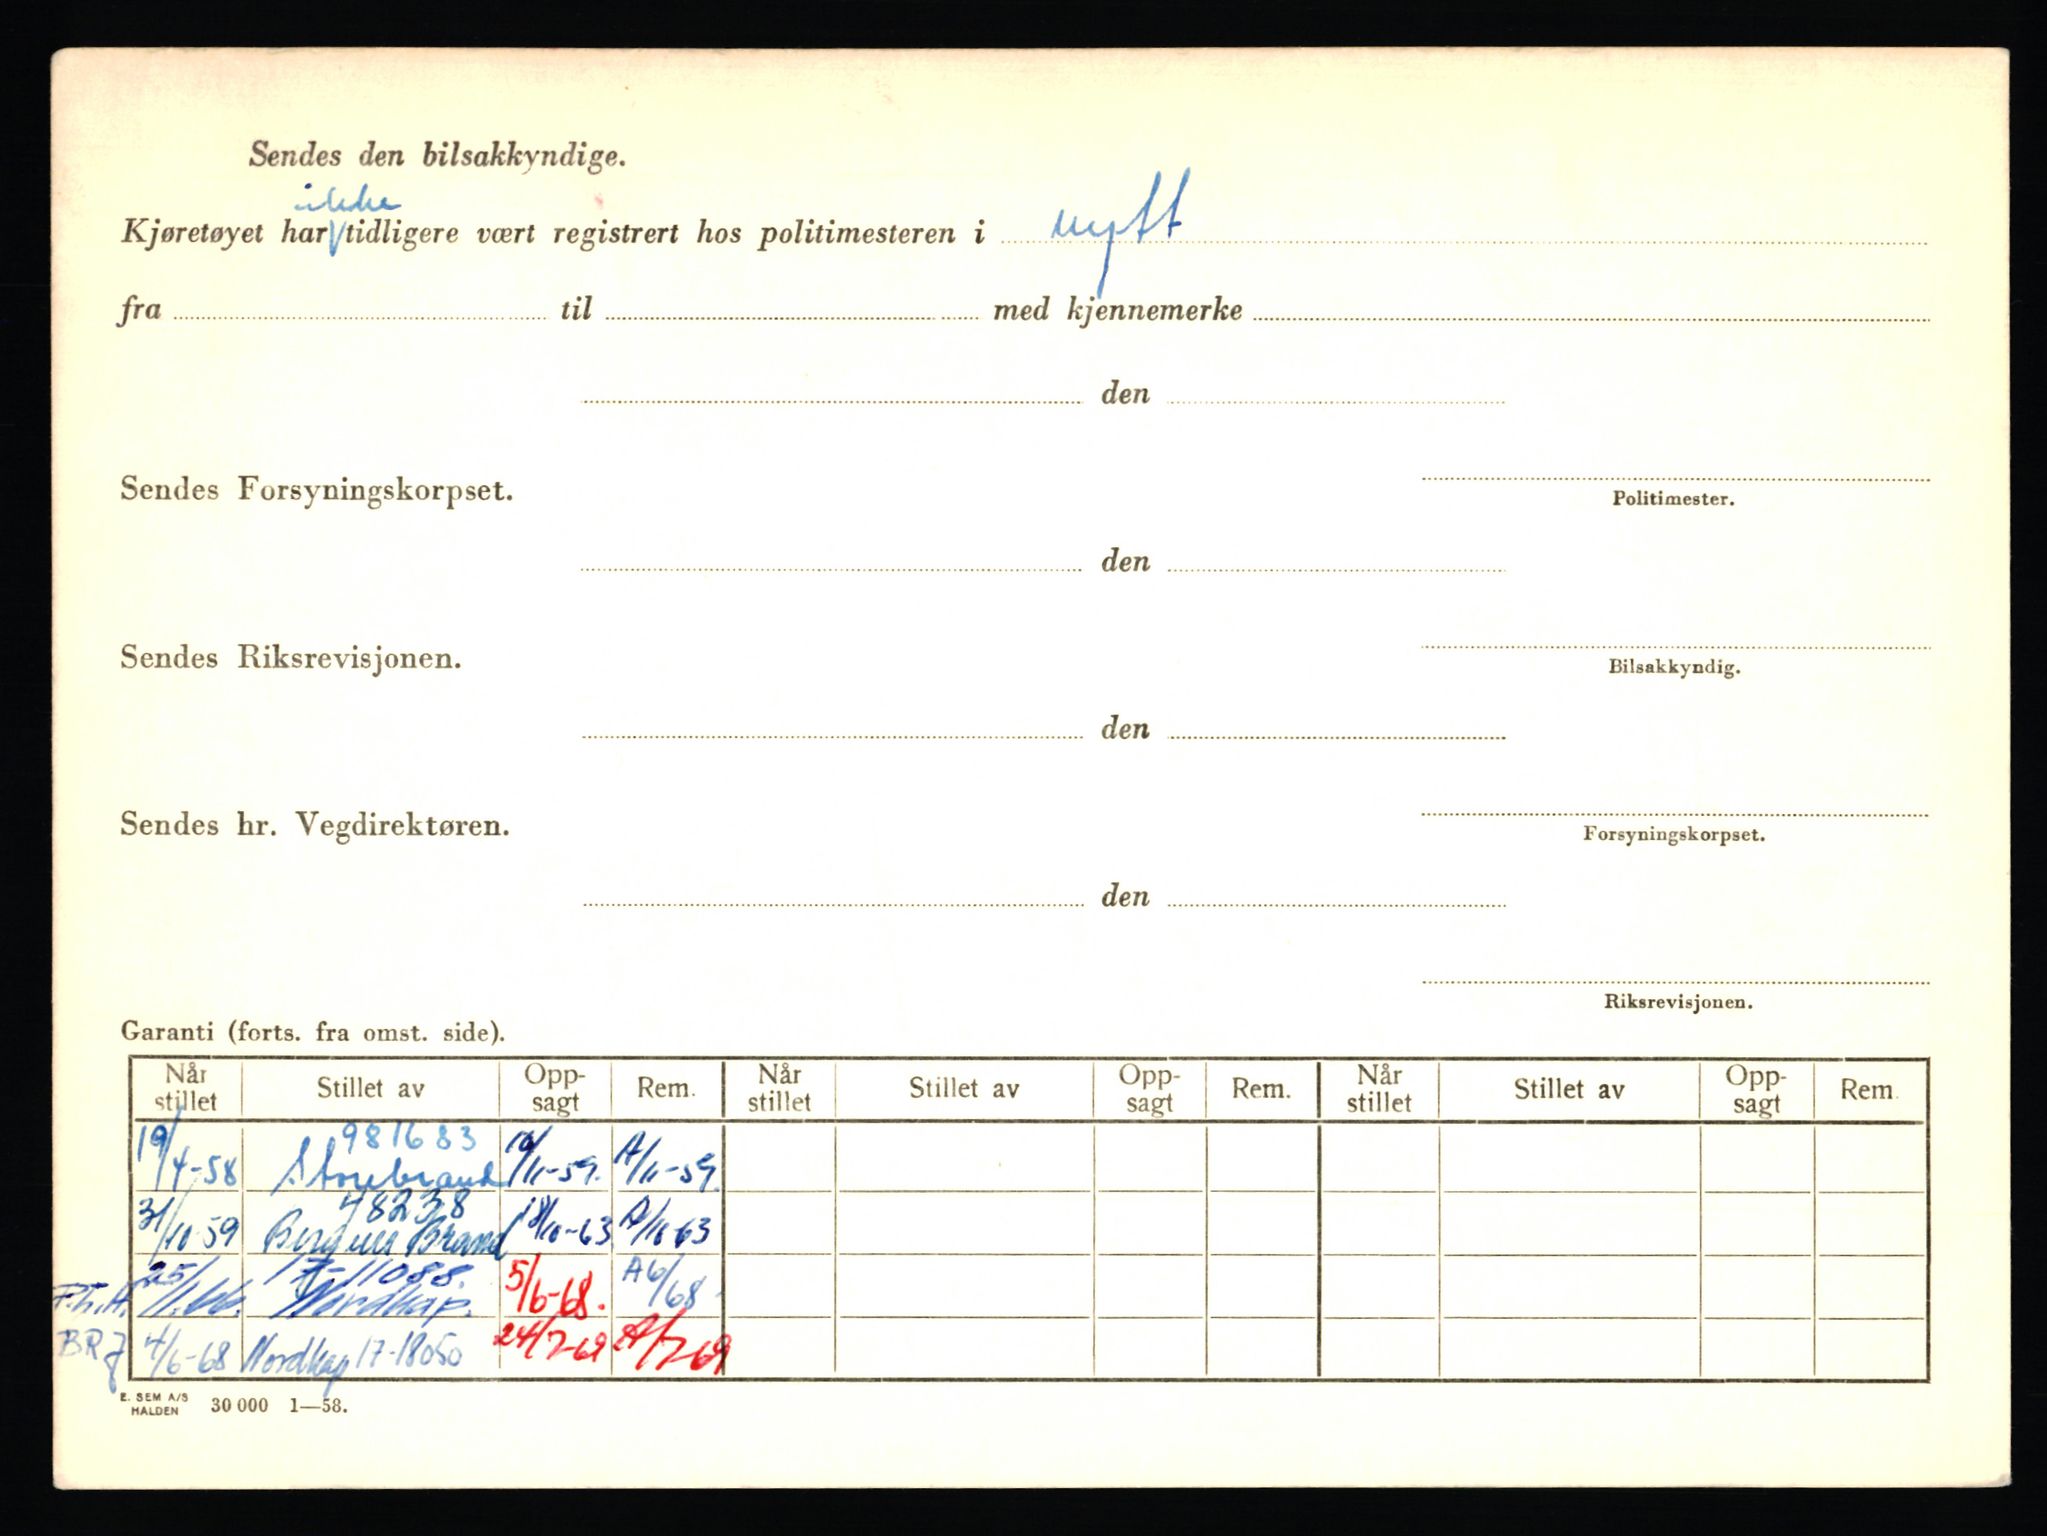 Sendes den bilsakkyndige.
ikke
Kjøretøyet har tidligere vært registrert hos politimesteren i nytt
fra til med kjennemerke
den
Sendes Forsyningskorpset.
Politimester.
den
Sendes Riksrevisjonen.
Bilsakkyndig.
den
Sendes hr. Vegdirektøren.
Forsyningskorpset.
den
Riksrevisjonen.
Garanti (forts. fra omst. side).
Når stillet Stillet av Opp-sagt Rem. Når stillet Stillet av Opp-sagt Rem. Når stillet Stillet av Opp-sagt Rem.
981683
19/4-58 Storebrand 19/11-59. A/11-59.
48238
31/10-59 Bergens Brand 18/10-63 A/10-63
17-11088.
Nordkap. 5/6-68. A6/68
4/6-68 Nordkap 17-18050 24/7-69 A/7-69
E. SEM A/S
HALDEN 30 000 1—58.